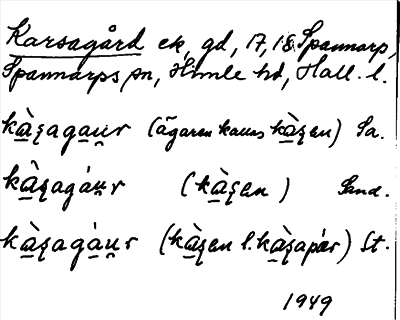 Karsagård ek, gd, 17, 18 Spannarp,
Spannarps sn, Himle hd, Hall. l.
kàʂagau̯r (ägaren kallas kàʂen) Sa.
kàʂagáu̯r (kàʂen) Sand.
kàʂagàu̯r (kàʂen l. kàʂapär) St.
1949